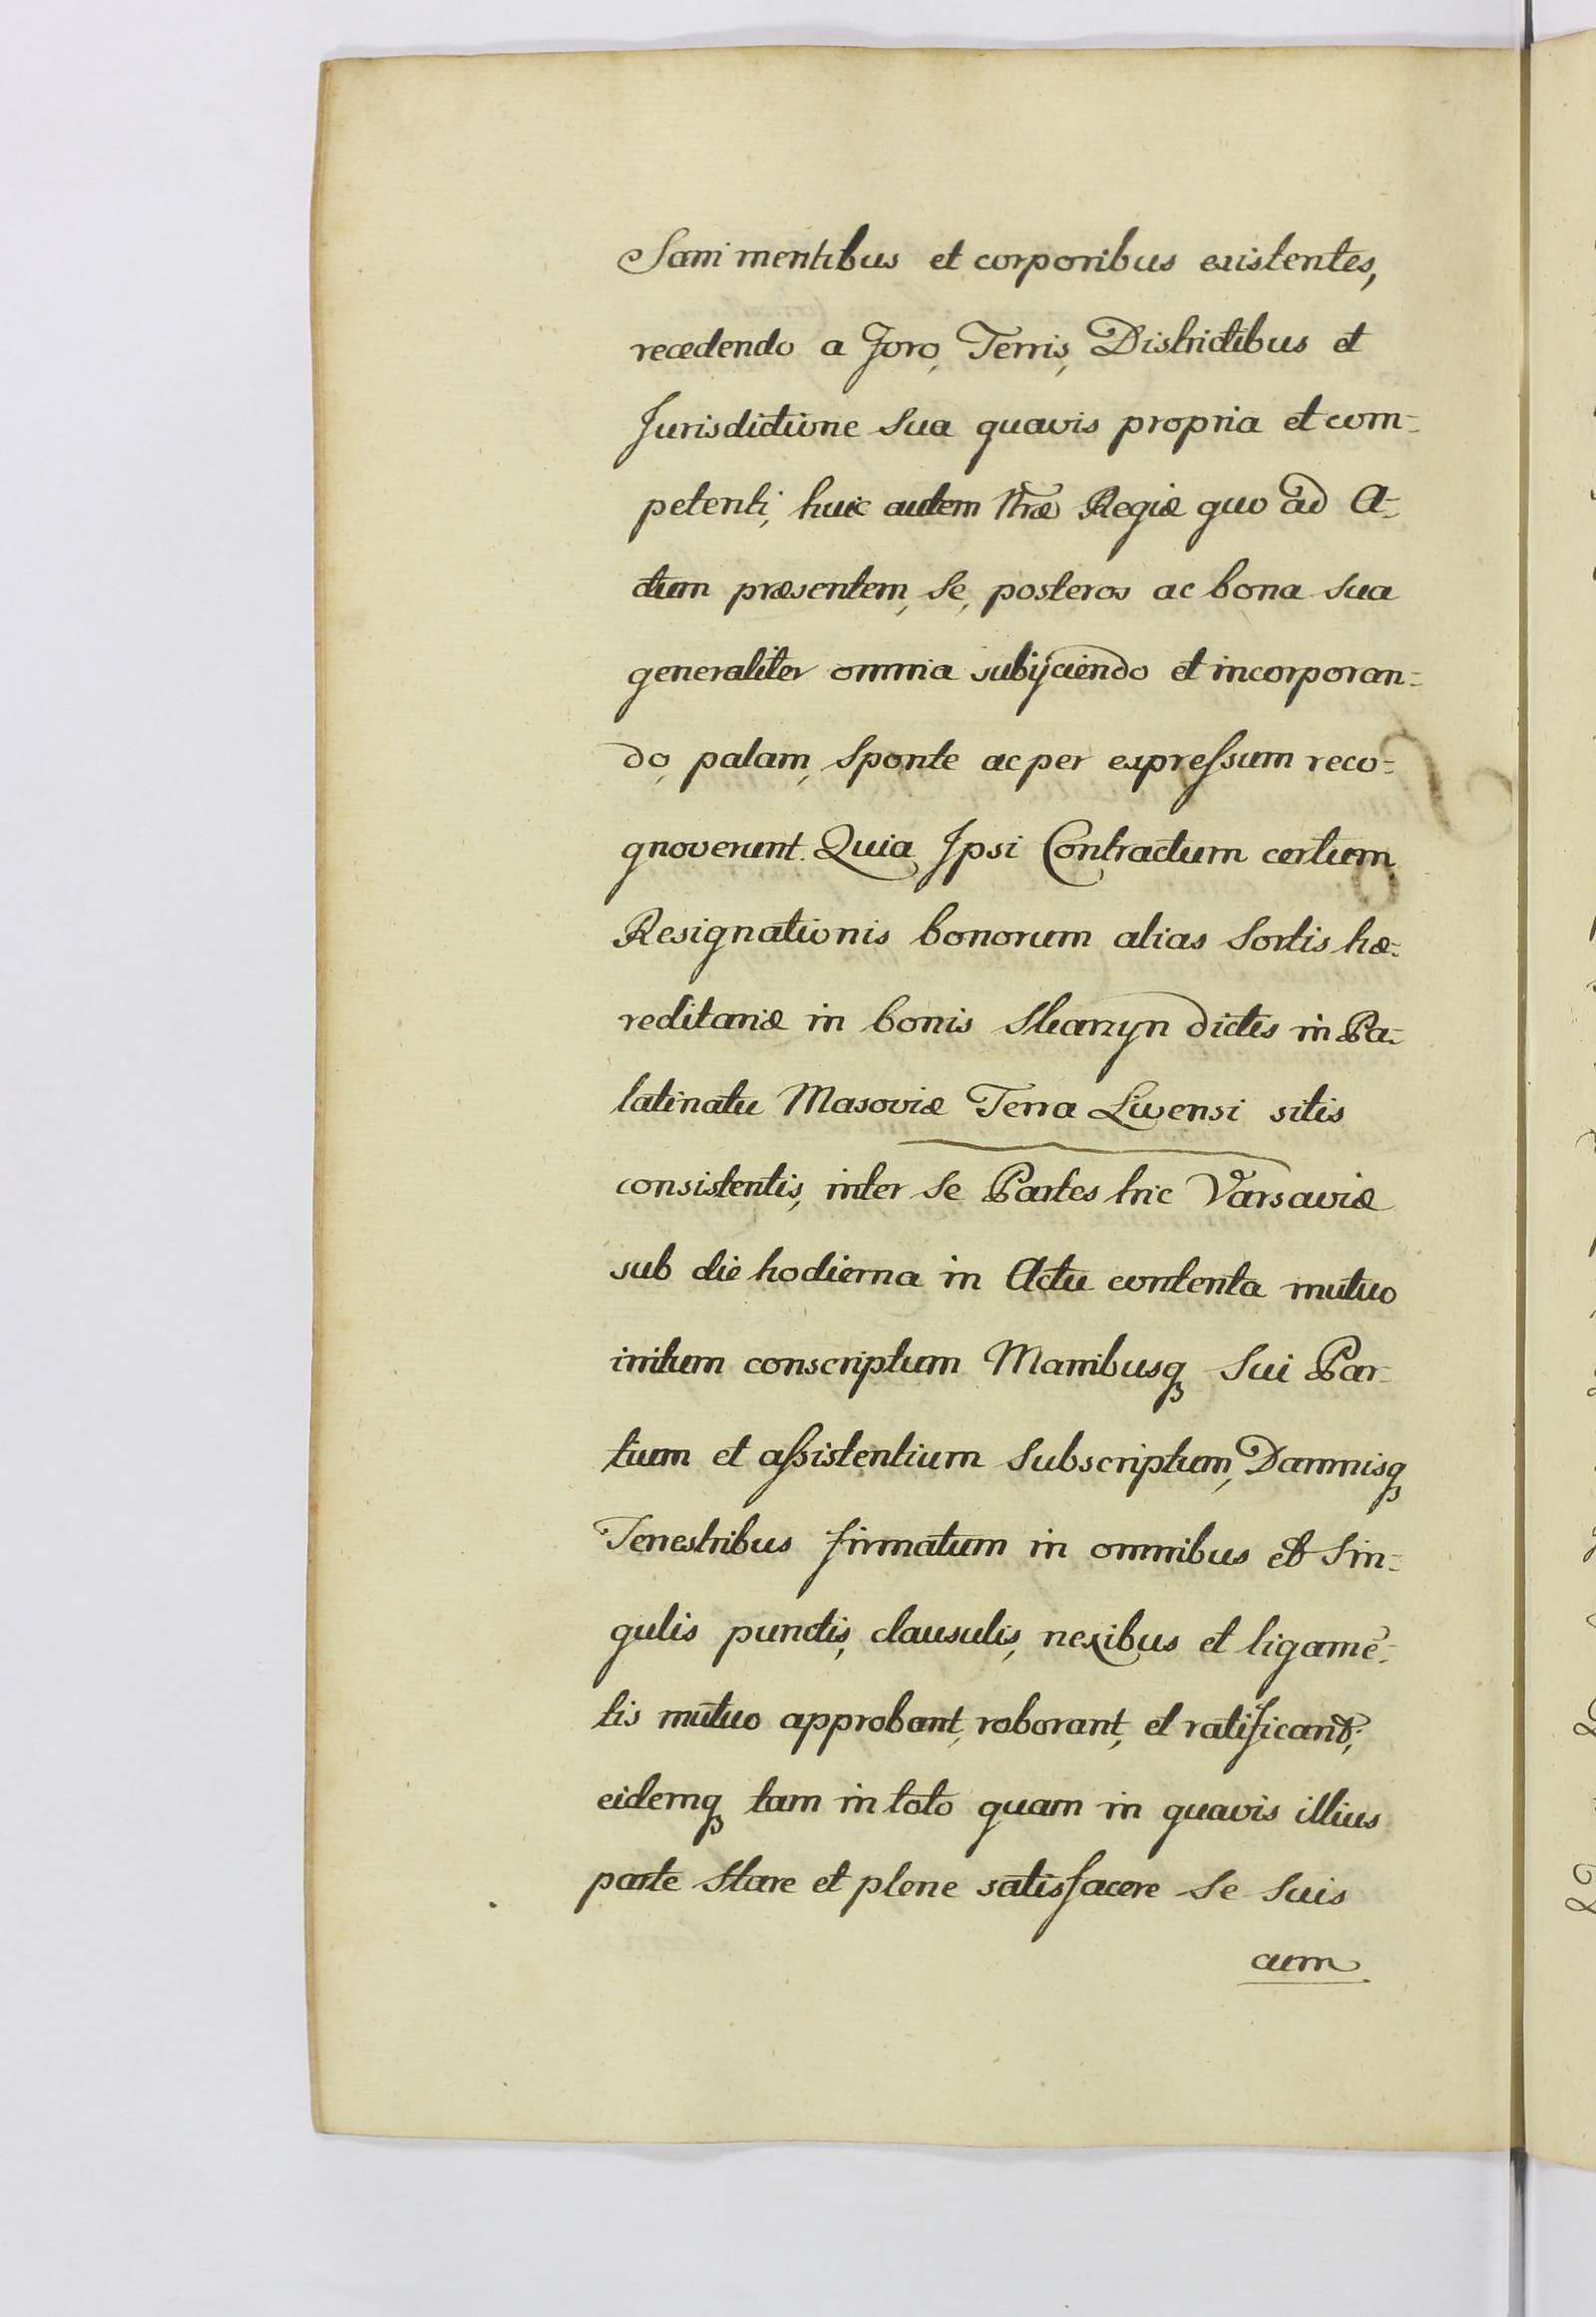 Sani mentibus et corporibus existentes,
recedendo a Foro, Terris, Districtibus et
Jurisdictione Sua quavis propria et com=
petenti, huic autem Nrae Regiæ quo ad A=
ctum præsentem, Se, posteros ac bona sua
generaliter omnia subijciendo et incorporan=
do, palam, Sponte ac per expreſsum reco=
gnoverunt. Quia Ipsi Contractum certum
Resignationis bonorum alias Sortis hæ=
reditariæ in bonis dictis in Pa=
latinatu Masoviæ Terra Livensi sitis
consistentis, inter Se Partes hic Varsaviæ
sub die hodierna in Actu contenta mutuo
initum conscriptum Manibusq Sui Par=
tium et aſsistentium Subscriptum, Damnisq
Terrestribus firmatum in omnibus et Sin=
gulis punctis, clausulis, nexibus et ligamē=
tis mutuo approbant, roborant, et ratificant,
eidemq tam in toto quam in quavis illius
parte Stare et plene satisfacere Se Suis
cum